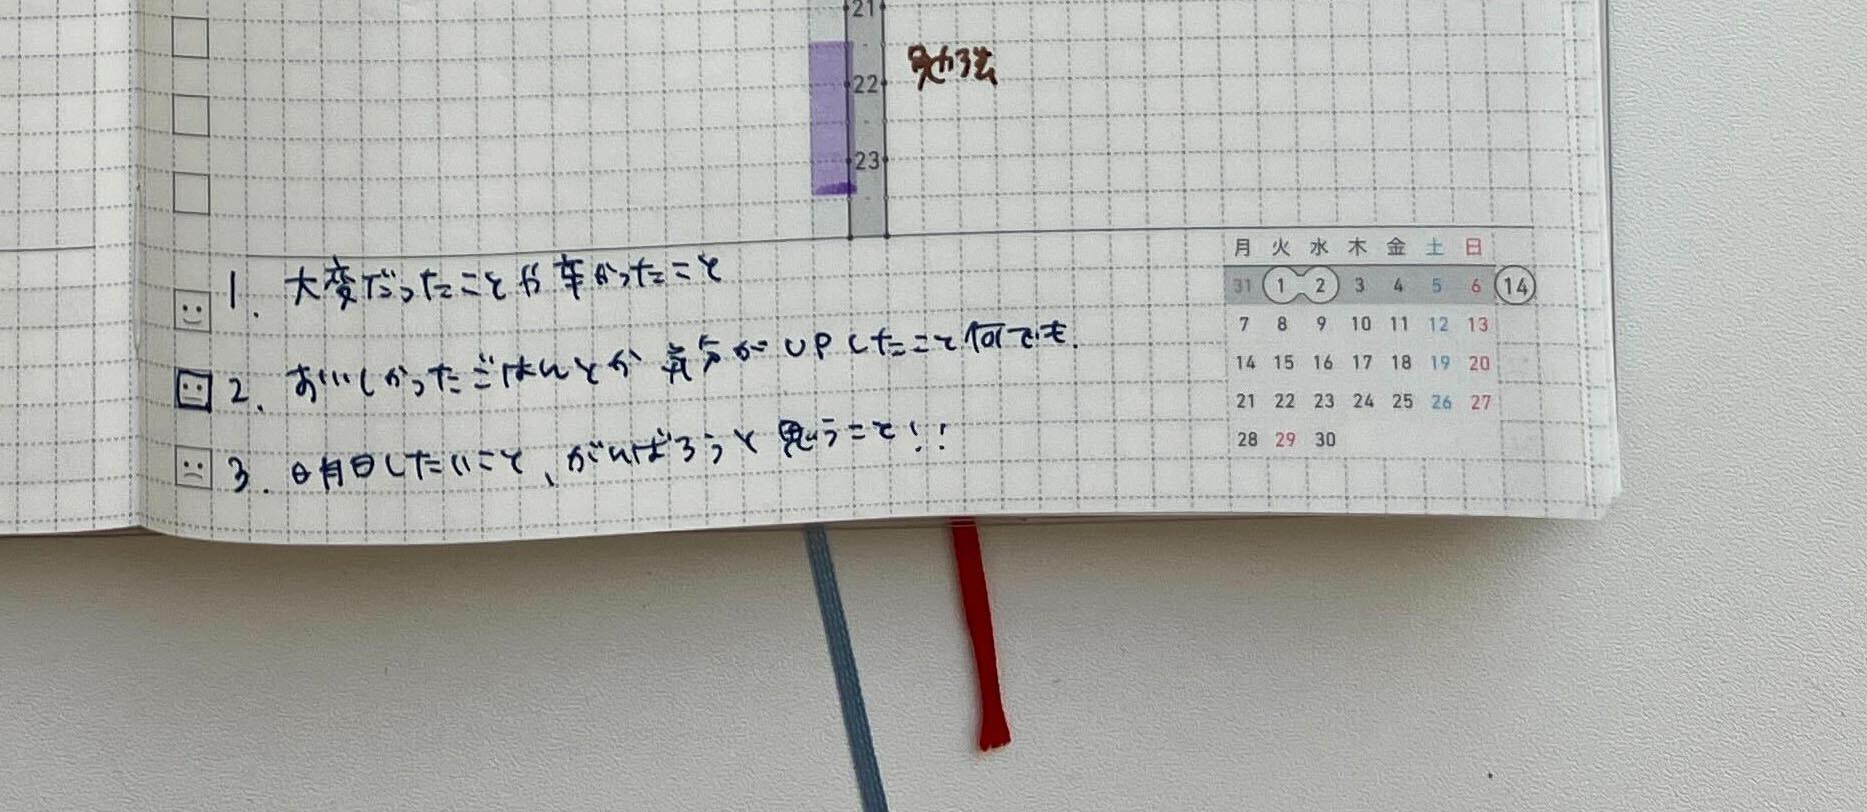 21
22
23
1. 大変だったことや辛かったこと
2. おいしかったごはんとか 気分がUPしたこと何でも.
3. 明日したいこと、がんばろうと思うこと!!
月 火 水 木 金 土 日
31 1 2 3 4 5 6 14
7 8 9 10 11 12 13
14 15 16 17 18 19 20
21 22 23 24 25 26 27
28 29 30